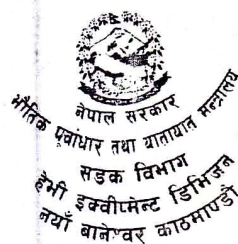 नेपाल सरकार
भौतिक पूर्वाधार तथा यातायात मन्त्रालय
सडक विभाग
हेभी इक्वीप्मेन्ट डिभिजन
नयाँ बानेश्वर काठमाण्डौ